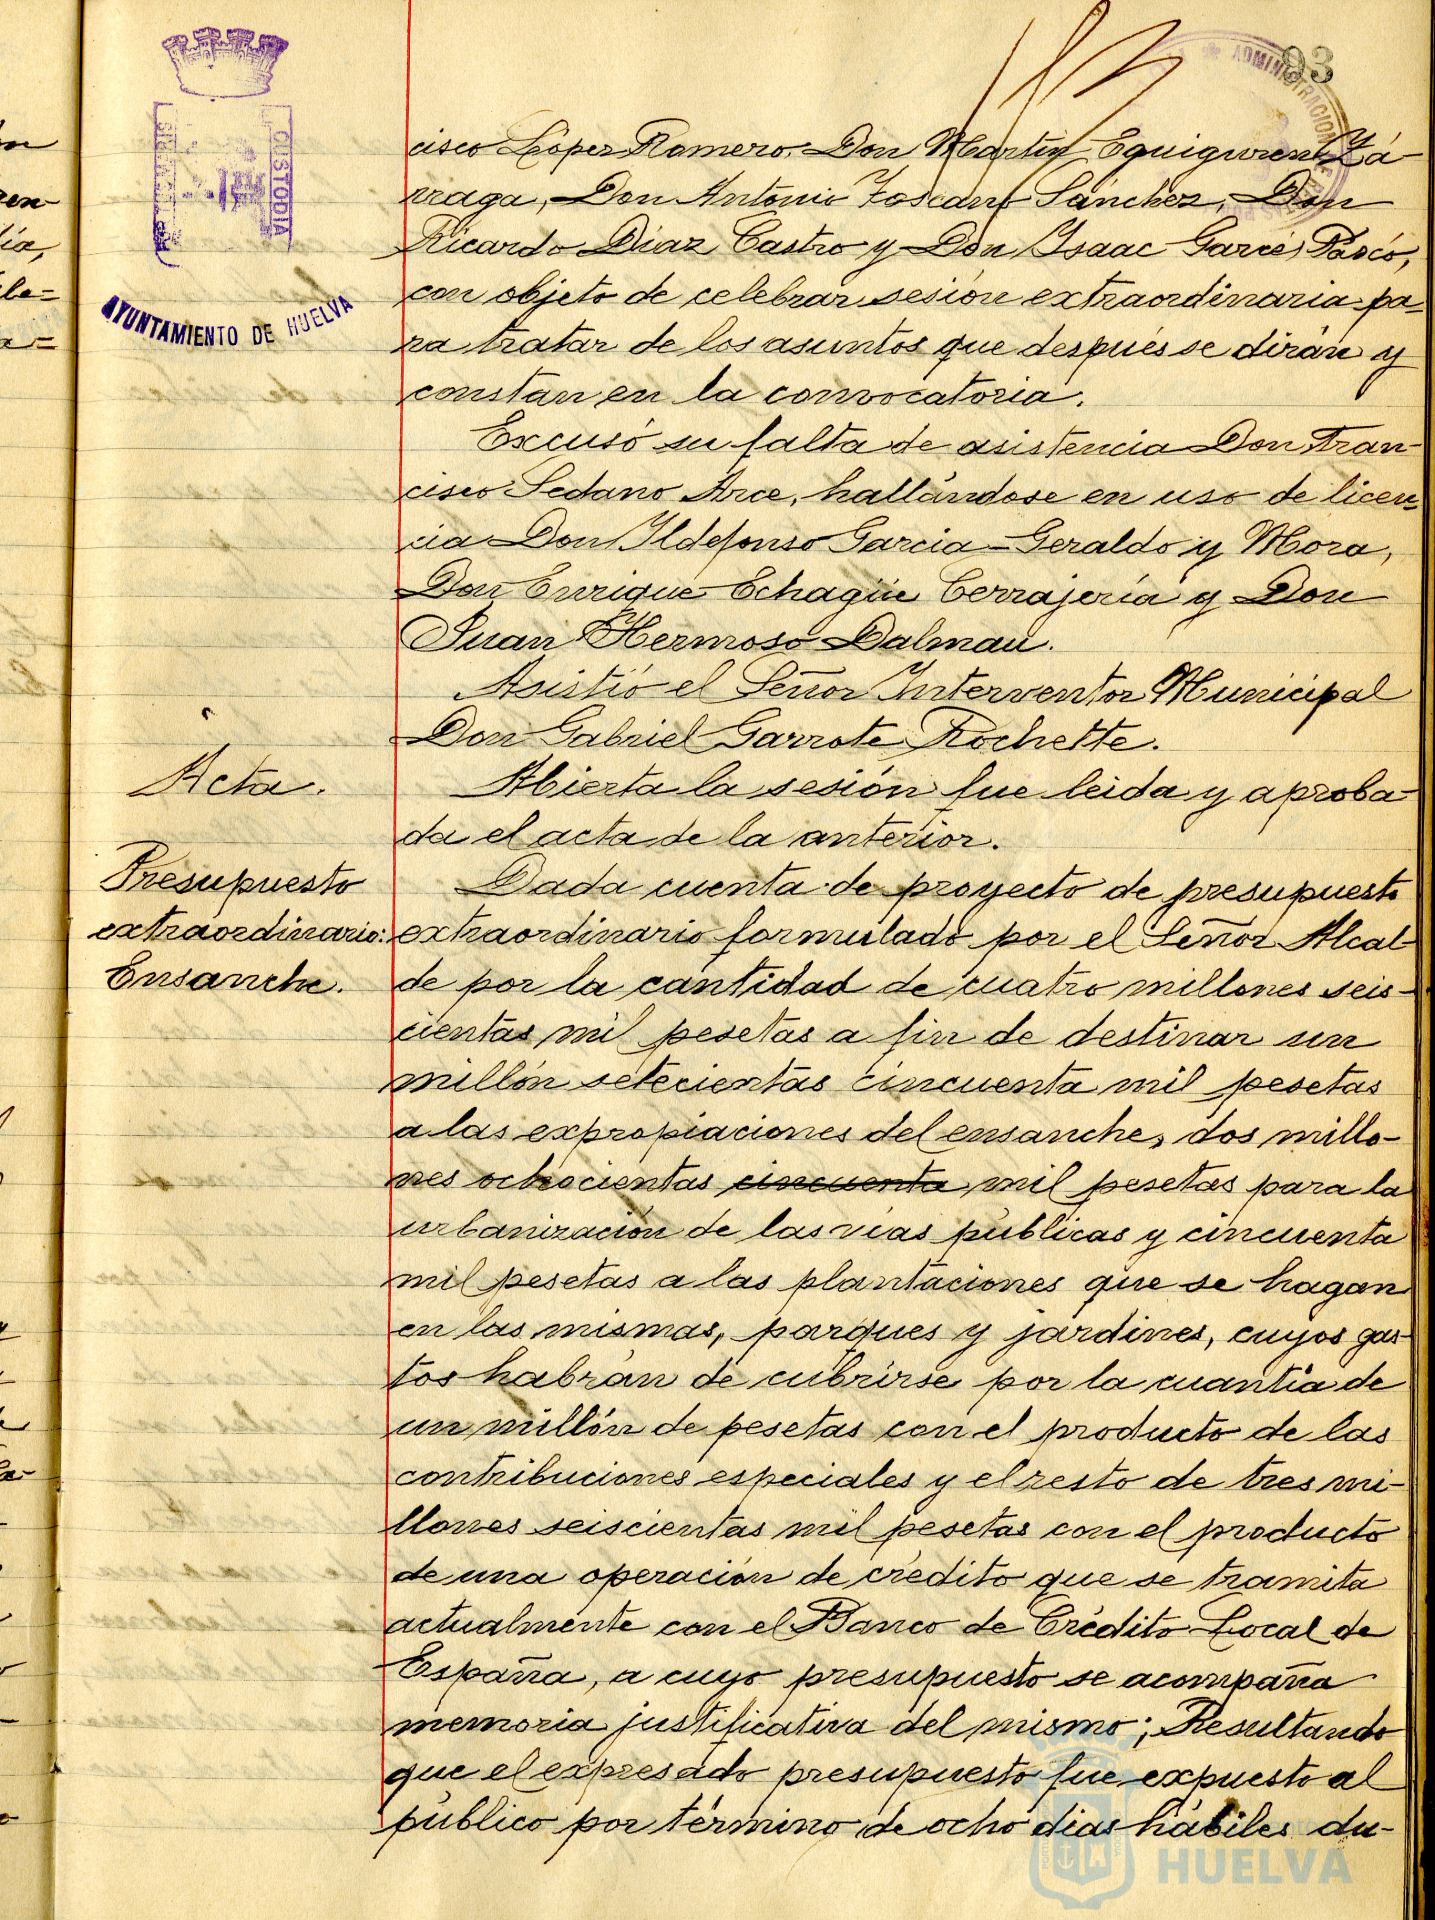 93
ADMINISTRACION DE RENTAS
CUSTODIA
AYUNTAMIENTO DE HUELVA
cisco López Romero, Don Martin Eguiguren Lá-
rraga, Don Antonio Toscano Sánchez, Don
Ricardo Diaz Castro y Don Isaac Garcé Pascó,
con objeto de celebrar sesión extraordinaria pa-
ra tratar de los asuntos que después se dirán y
constan en la convocatoria.
Excusó su falta de asistencia Don Fran-
cisco Sedano Arce, hallándose en uso de licen-
cia Don Ildefonso Garcia-Geraldo y Mora,
Don Enrique Echagüe Cerrajería y Don
Juan Hermoso Dalmau.
Asistió el Señor Interventor Municipal
Don Gabriel Garrote Rochette.
Acta.
Abierta la sesión fue leida y aproba-
da el acta de la anterior.
Presupuesto
extraordinario:
Ensanche.
Dada cuenta de proyecto de presupuesto
extraordinario formulado por el Señor Alcal-
de por la cantidad de cuatro millones seis-
cientas mil pesetas a fin de destinar un
millón setecientas cincuenta mil pesetas
a las expropiaciones del ensanche, dos millo-
nes ochocientas cincuenta mil pesetas para la
urbanización de las vías públicas y cincuenta
mil pesetas a las plantaciones que se hagan
en las mismas, parques y jardines, cuyos gas-
tos habrán de cubrirse por la cuantía de
un millón de pesetas con el producto de las
contribuciones especiales y el resto de tres mi-
llones seiscientas mil pesetas con el producto
de una operación de crédito que se tramita
actualmente con el Banco de Crédito Local de
España, a cuyo presupuesto se acompaña
memoria justificativa del mismo; Resultando
que el expresado presupuesto fue expuesto al
público por término de ocho dias hábiles du-
HUELVA